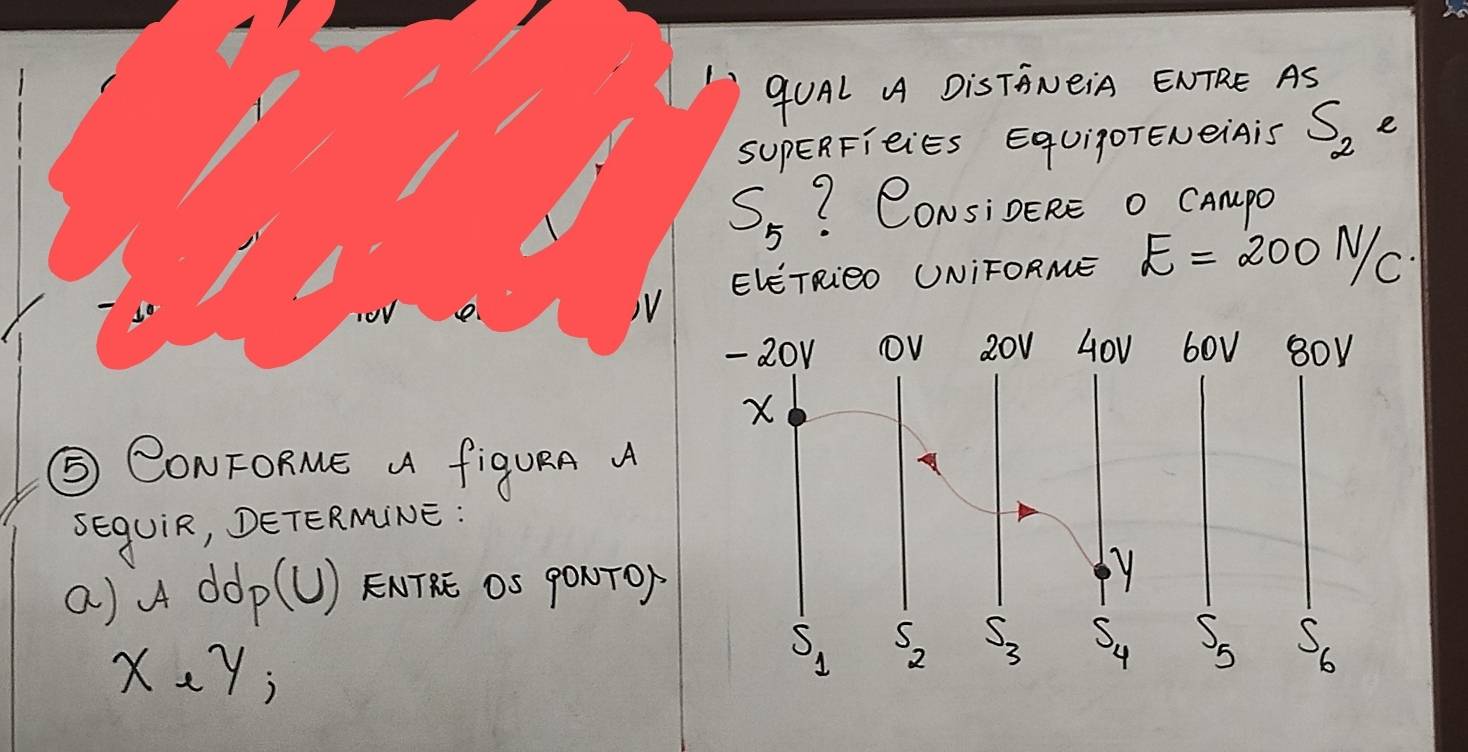 ⑤ CONFORME A FIGURA A
SEGUIR, DETERMINE:
a) A ddp(U) ENTRE OS PONTOS
X e Y;
QUAL A DISTÂNCIA ENTRE AS
SUPERFÍCIES EQUIPOTENCIAIS S₂ e
S₅? CONSIDERE O CAMPO
ELÉTRICO UNIFORME E = 200 N/C.
-20V 0V 20V 40V 60V 80V
X
Y
S₁ S₂ S₃ S₄ S₅ S₆